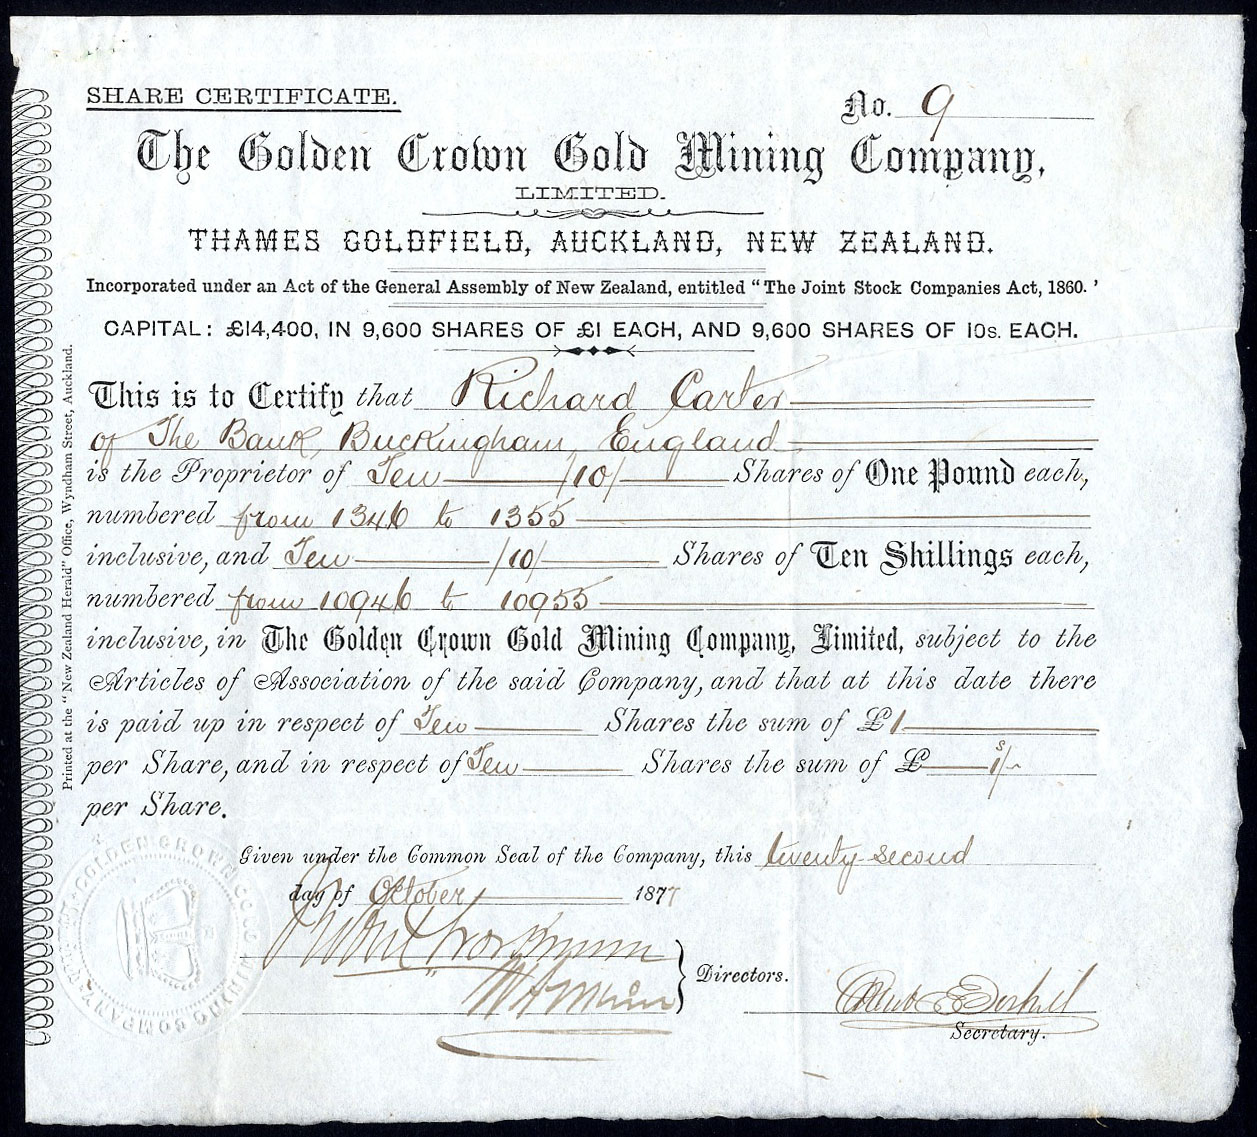 SHARE CERTIFICATE.
No. 9
The Golden Crown Gold Mining Company,
LIMITED.
THAMES GOLDFIELD, AUCKLAND, NEW ZEALAND.
Incorporated under an Act of the General Assembly of New Zealand, entitled "The Joint Stock Companies Act, 1860.'
CAPITAL: £14,400, IN 9,600 SHARES OF £1 EACH, AND 9,600 SHARES OF 10s. EACH.
This is to Certify that Richard Carter
of The Bank, Buckingham, England
is the Proprietor of Ten /10/ Shares of One Pound each,
numbered from 1346 to 1355
inclusive, and Ten /10/ Shares of Ten Shillings each,
numbered from 10946 to 10955
inclusive, in The Golden Crown Gold Mining Company, Limited, subject to the
Articles of Association of the said Company, and that at this date there
is paid up in respect of Ten Shares the sum of £1
per Share, and in respect of Ten Shares the sum of £ 1s/-
per Share.
Given under the Common Seal of the Company, this twenty-second
day of October 1877
Directors.
Secretary.
Printed at the "New Zealand Herald" Office, Wyndham Street, Auckland.
GOLDEN CROWN GOLD MINING COMPANY LIMITED